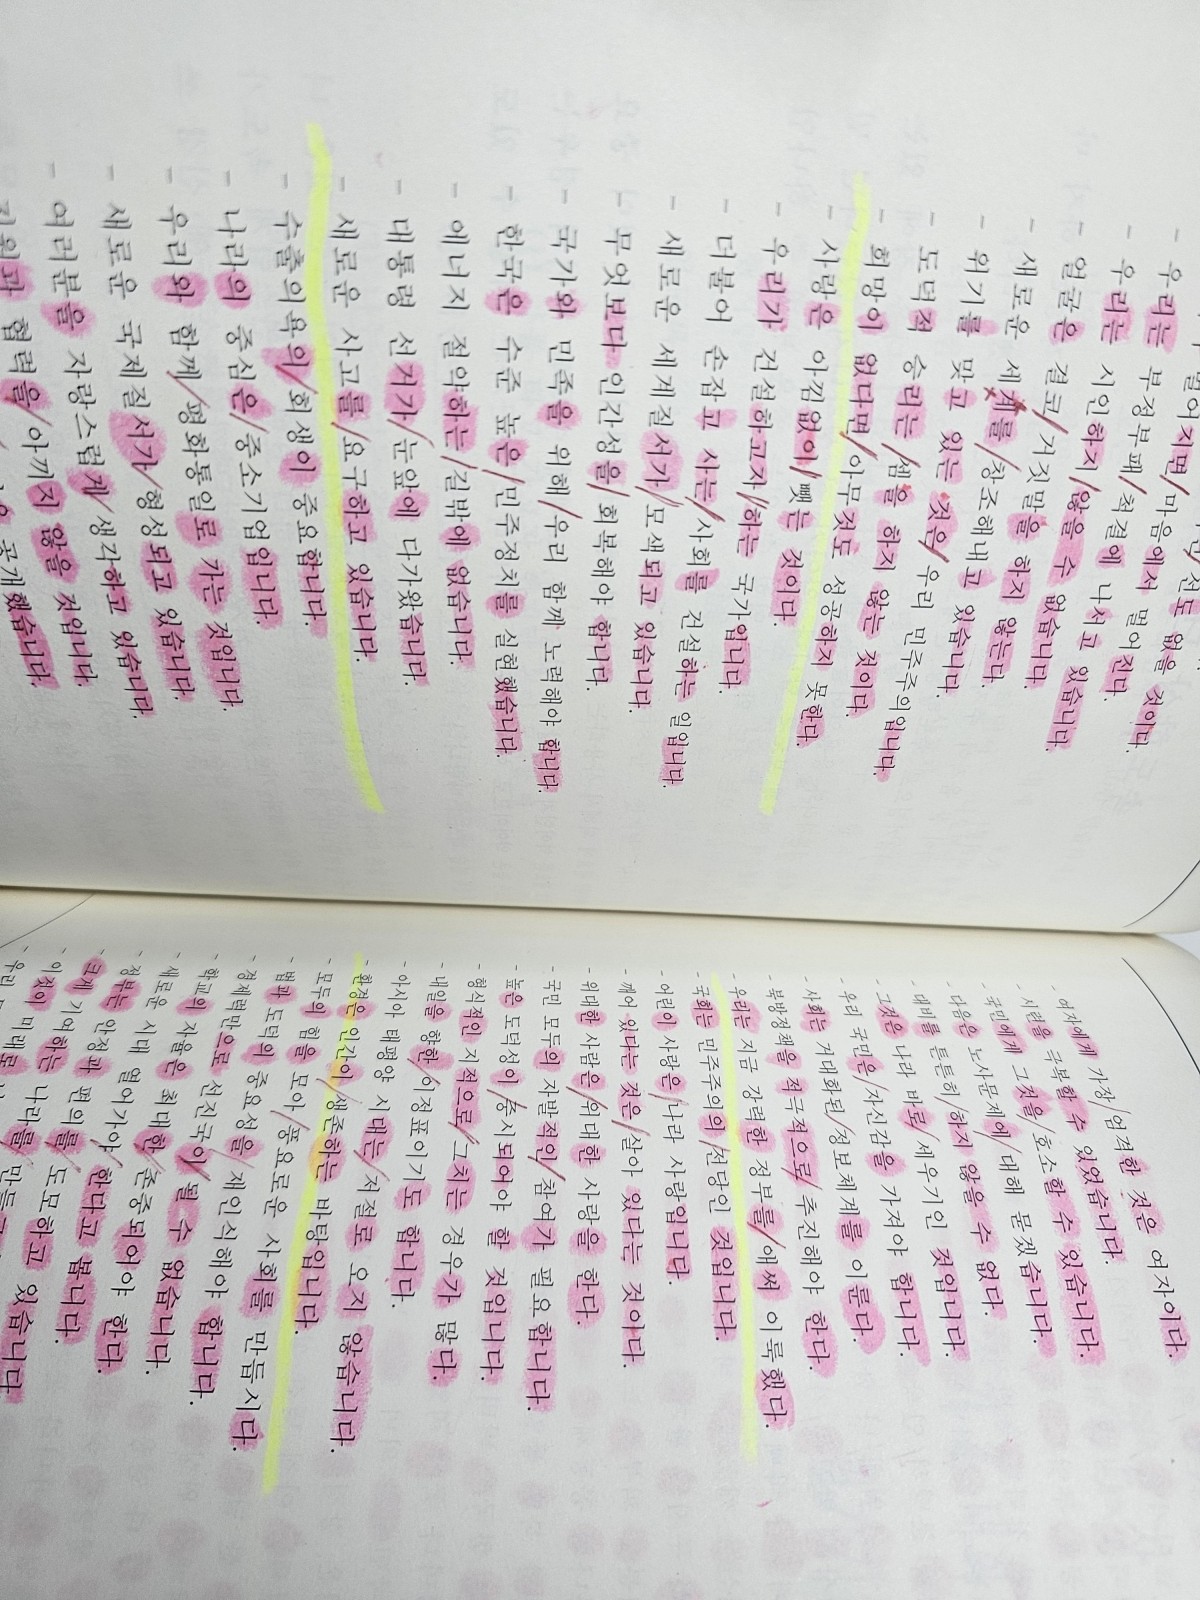 없을 것이다.
멀어지면/마음에서 멀어진다.
- 우리는 부정부패/척결에 나서고 있습니다.
- 우리는 시인하지/않을 수 없습니다.
- 얼굴은 결코/거짓말을 하지 않는다.
- 새로운 세계를/창조해내고 있습니다.
- 위기를 맞고 있는 것은/우리 민주주의입니다.
- 도덕적 승리는/셈을 하지 않는 것이다.
- 희망이 없다면/아무것도 성공하지 못한다.
- 사랑은 아낌없이/뺏는 것이다.
- 우리가 건설하고자/하는 국가입니다.
- 더불어 손잡고 사는/사회를 건설하는 일입니다.
- 새로운 세계질서가/모색되고 있습니다.
- 무엇보다 인간성을/회복해야 합니다.
- 국가와 민족을 위해/우리 함께 노력해야 합니다.
- 한국은 수준 높은/민주정치를 실현했습니다.
- 에너지 절약하는/길밖에 없습니다.
- 대통령 선거가/눈앞에 다가왔습니다.
- 새로운 사고를/요구하고 있습니다.
- 수출의욕의/회생이 중요합니다.
- 나라의 중심은/중소기업입니다.
- 우리와 함께/평화통일로 가는 것입니다.
- 새로운 국제질서가/형성되고 있습니다.
- 여러분을 자랑스럽게/생각하고 있습니다.
지원과 협력을/아끼지 않을 것입니다.
공개했습니다.
- 여자에게 가장/엄격한 것은 여자이다.
- 시련을 극복할 수 있었습니다.
- 국민에게 그것을/호소할 수 있습니다.
- 다음은 노사문제에/대해 묻겠습니다.
- 대비를 튼튼히/하지 않을 수 없다.
- 그것은 나라 바로/세우기인 것입니다.
- 우리 국민은/자신감을 가져야 합니다.
- 사회는 거대화된/정보체계를 이룬다.
- 북방정책을 적극적으로/추진해야 한다.
- 우리는 지금 강력한 정부를/애써 이룩했다.
- 국회는 민주주의의/전당인 것입니다.
- 어린이 사랑은/나라 사랑입니다.
- 깨어 있다는 것은/살아 있다는 것이다.
- 위대한 사람은/위대한 사랑을 한다.
- 국민 모두의 자발적인/참여가 필요합니다.
- 높은 도덕성이/중시되어야 할 것입니다.
- 형식적인 지적으로/그치는 경우가 많다.
- 내일을 향한/이정표이기도 합니다.
- 아시아 태평양 시대는/저절로 오지 않습니다.
- 환경은 인간이/생존하는 바탕입니다.
- 모두의 힘을 모아/풍요로운 사회를 만듭시다.
- 법과 도덕의 중요성을/재인식해야 합니다.
- 경제력만으로 선진국이/될 수 없습니다.
- 학교의 자율은 최대한/존중되어야 한다.
- 새로운 시대 열어가야/한다고 봅니다.
- 정부는 안정과 편의를/도모하고 있습니다.
- 크게 기여하는 나라를/만들
- 이것이 미래로
- 우리